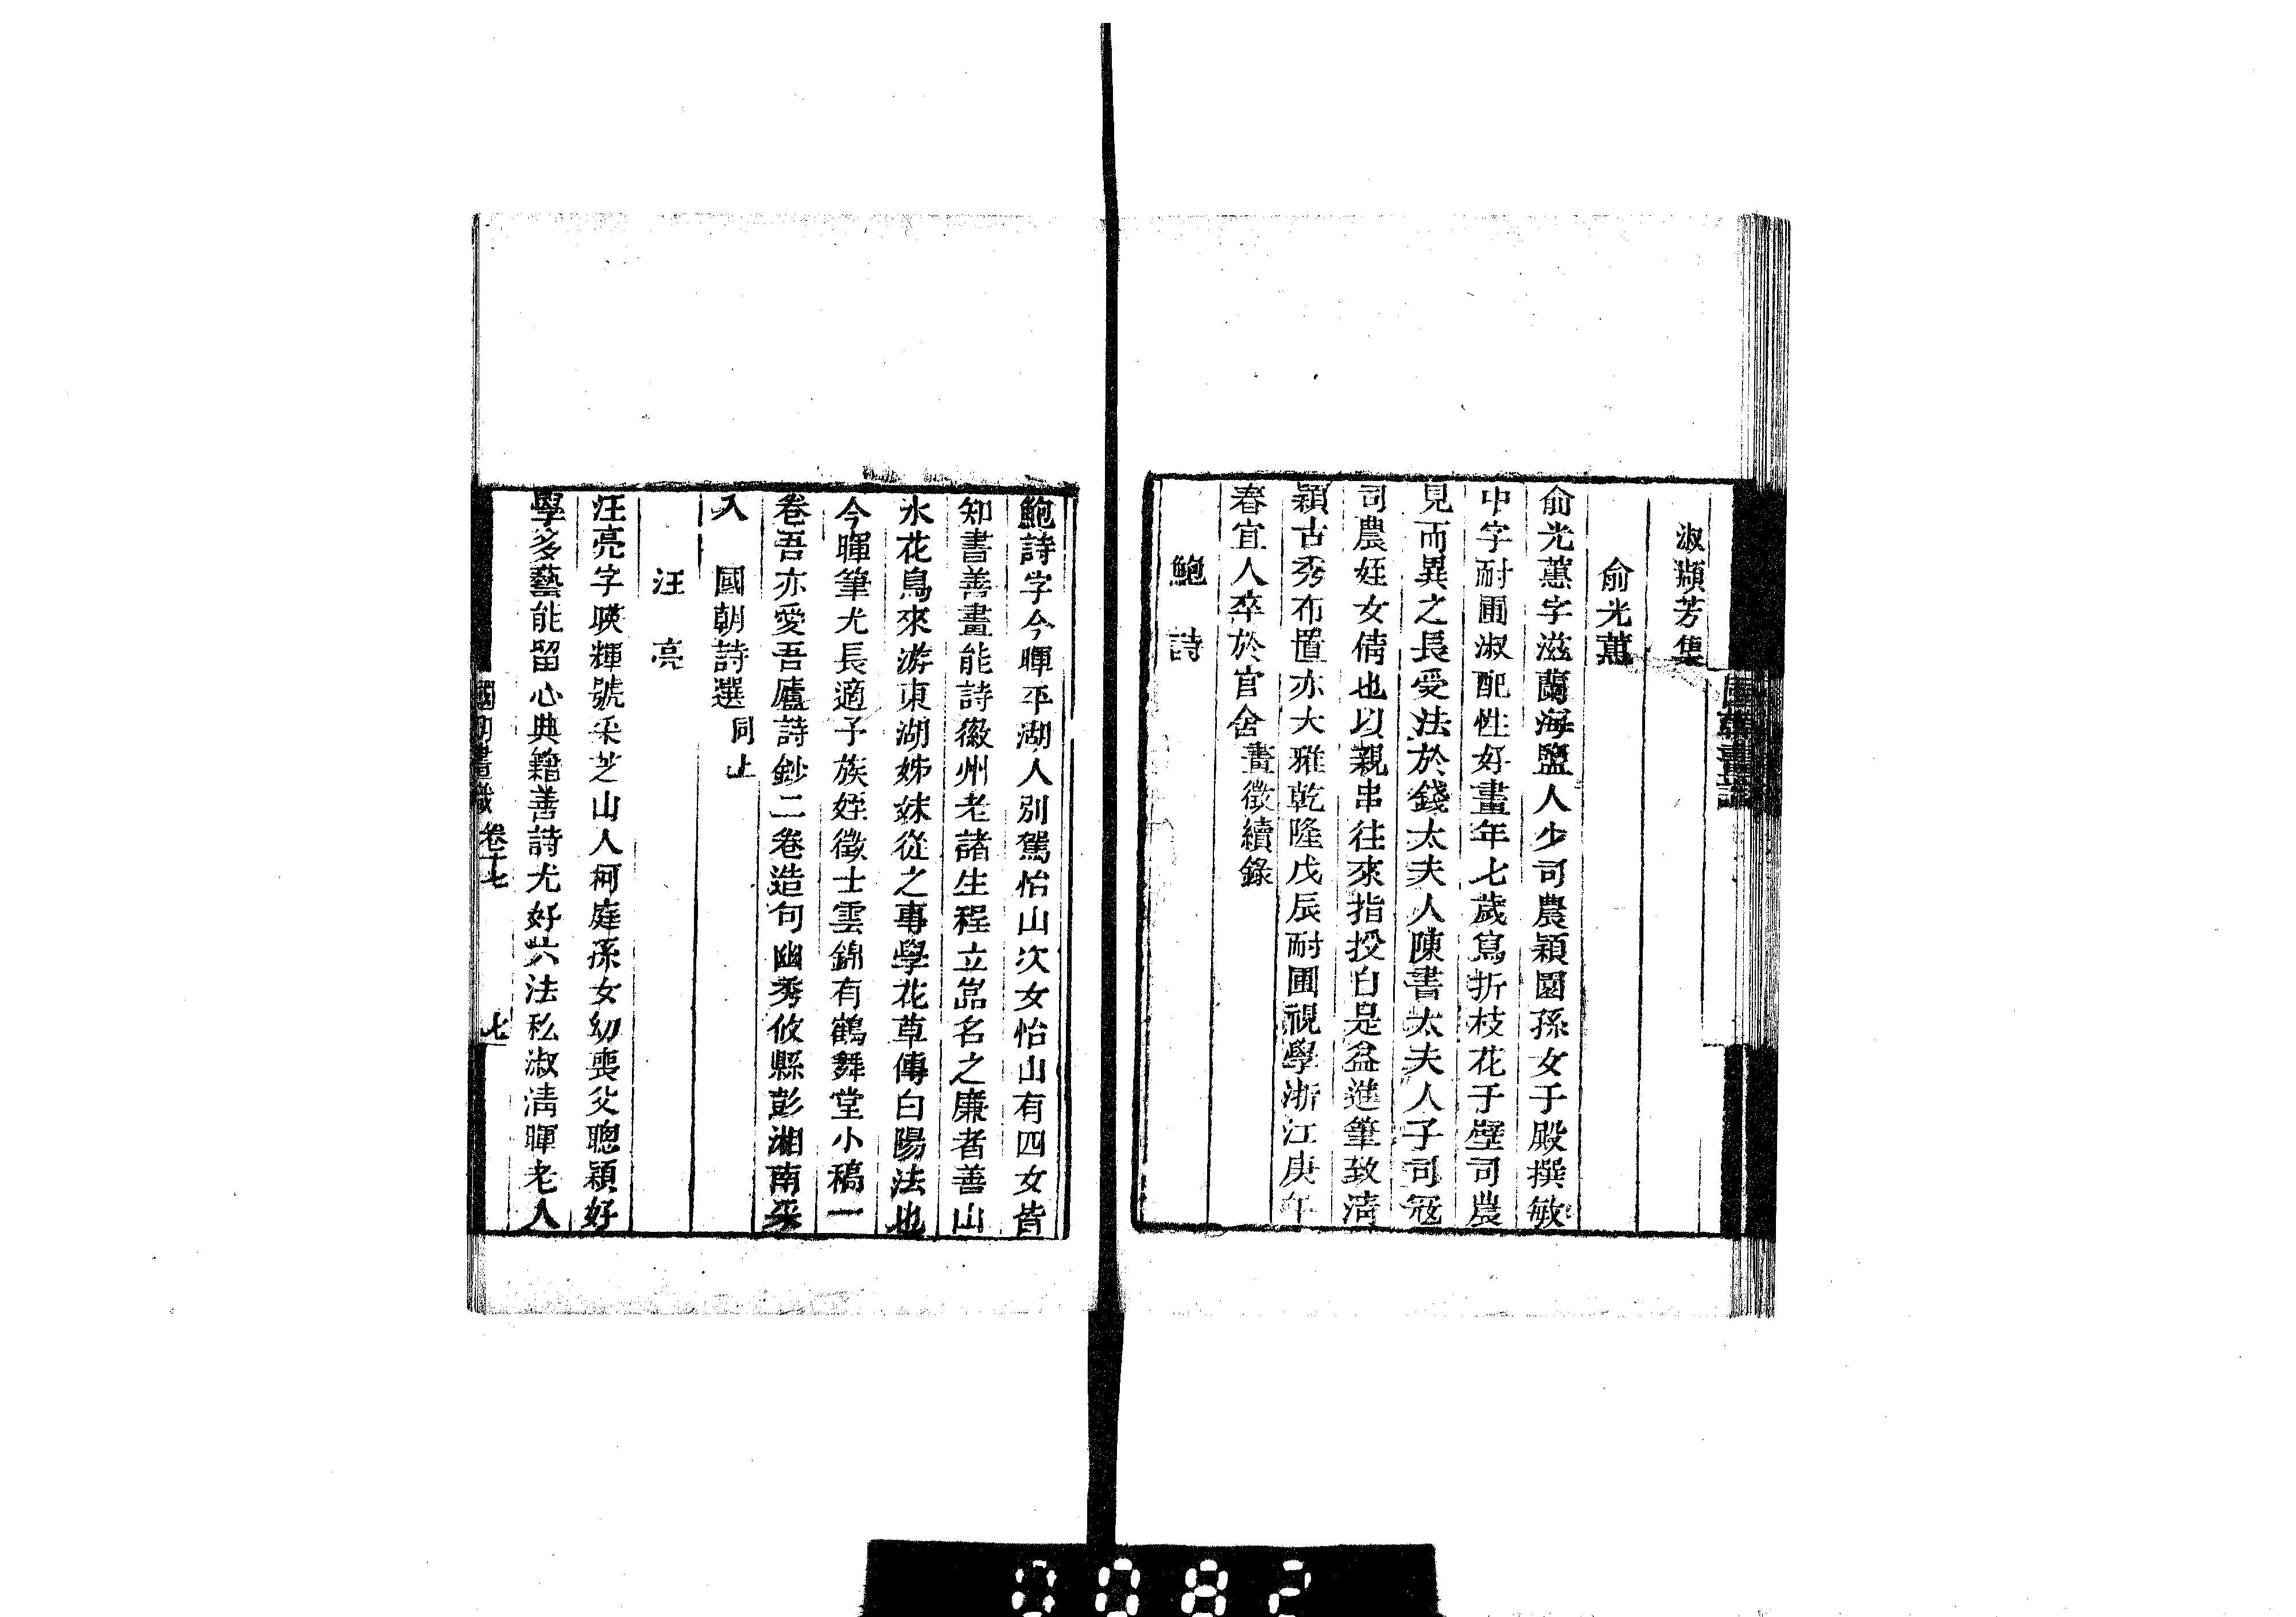 淑頻芳集
俞光蕙
俞光蕙字滋蘭海鹽人少司農穎園孫女于殿撰敏
中字耐圃淑配性好畫年七歲寫折枝花于壁司農
見而異之長受法於錢太夫人陳書太夫人子司寇
司農姪女倩也以親串往來指授自是益進筆致清
穎古秀布置亦大雅乾隆戊辰耐圃視學浙江庚午
春宜人卒於官舍畫徵續錄
鮑詩
鮑詩字今暉平湖人別駕怡山次女怡山有四女皆
知書善畫能詩徽州老諸生程立嵒名之廉者善山
水花鳥來游東湖姊妹從之事學花草傳白陽法也
今暉筆尤長適予族姪徵士雲錦有鶴舞堂小稿一
卷吾亦愛吾廬詩鈔二卷造句幽秀攸縣彭湘南采
入國朝詩選同上
汪亮
汪亮字暎輝號采芝山人柯庭孫女幼喪父聰穎好
學多藝能留心典籍善詩尤好六法私淑清暉老人
國朝畫識
卷十七
七
0082